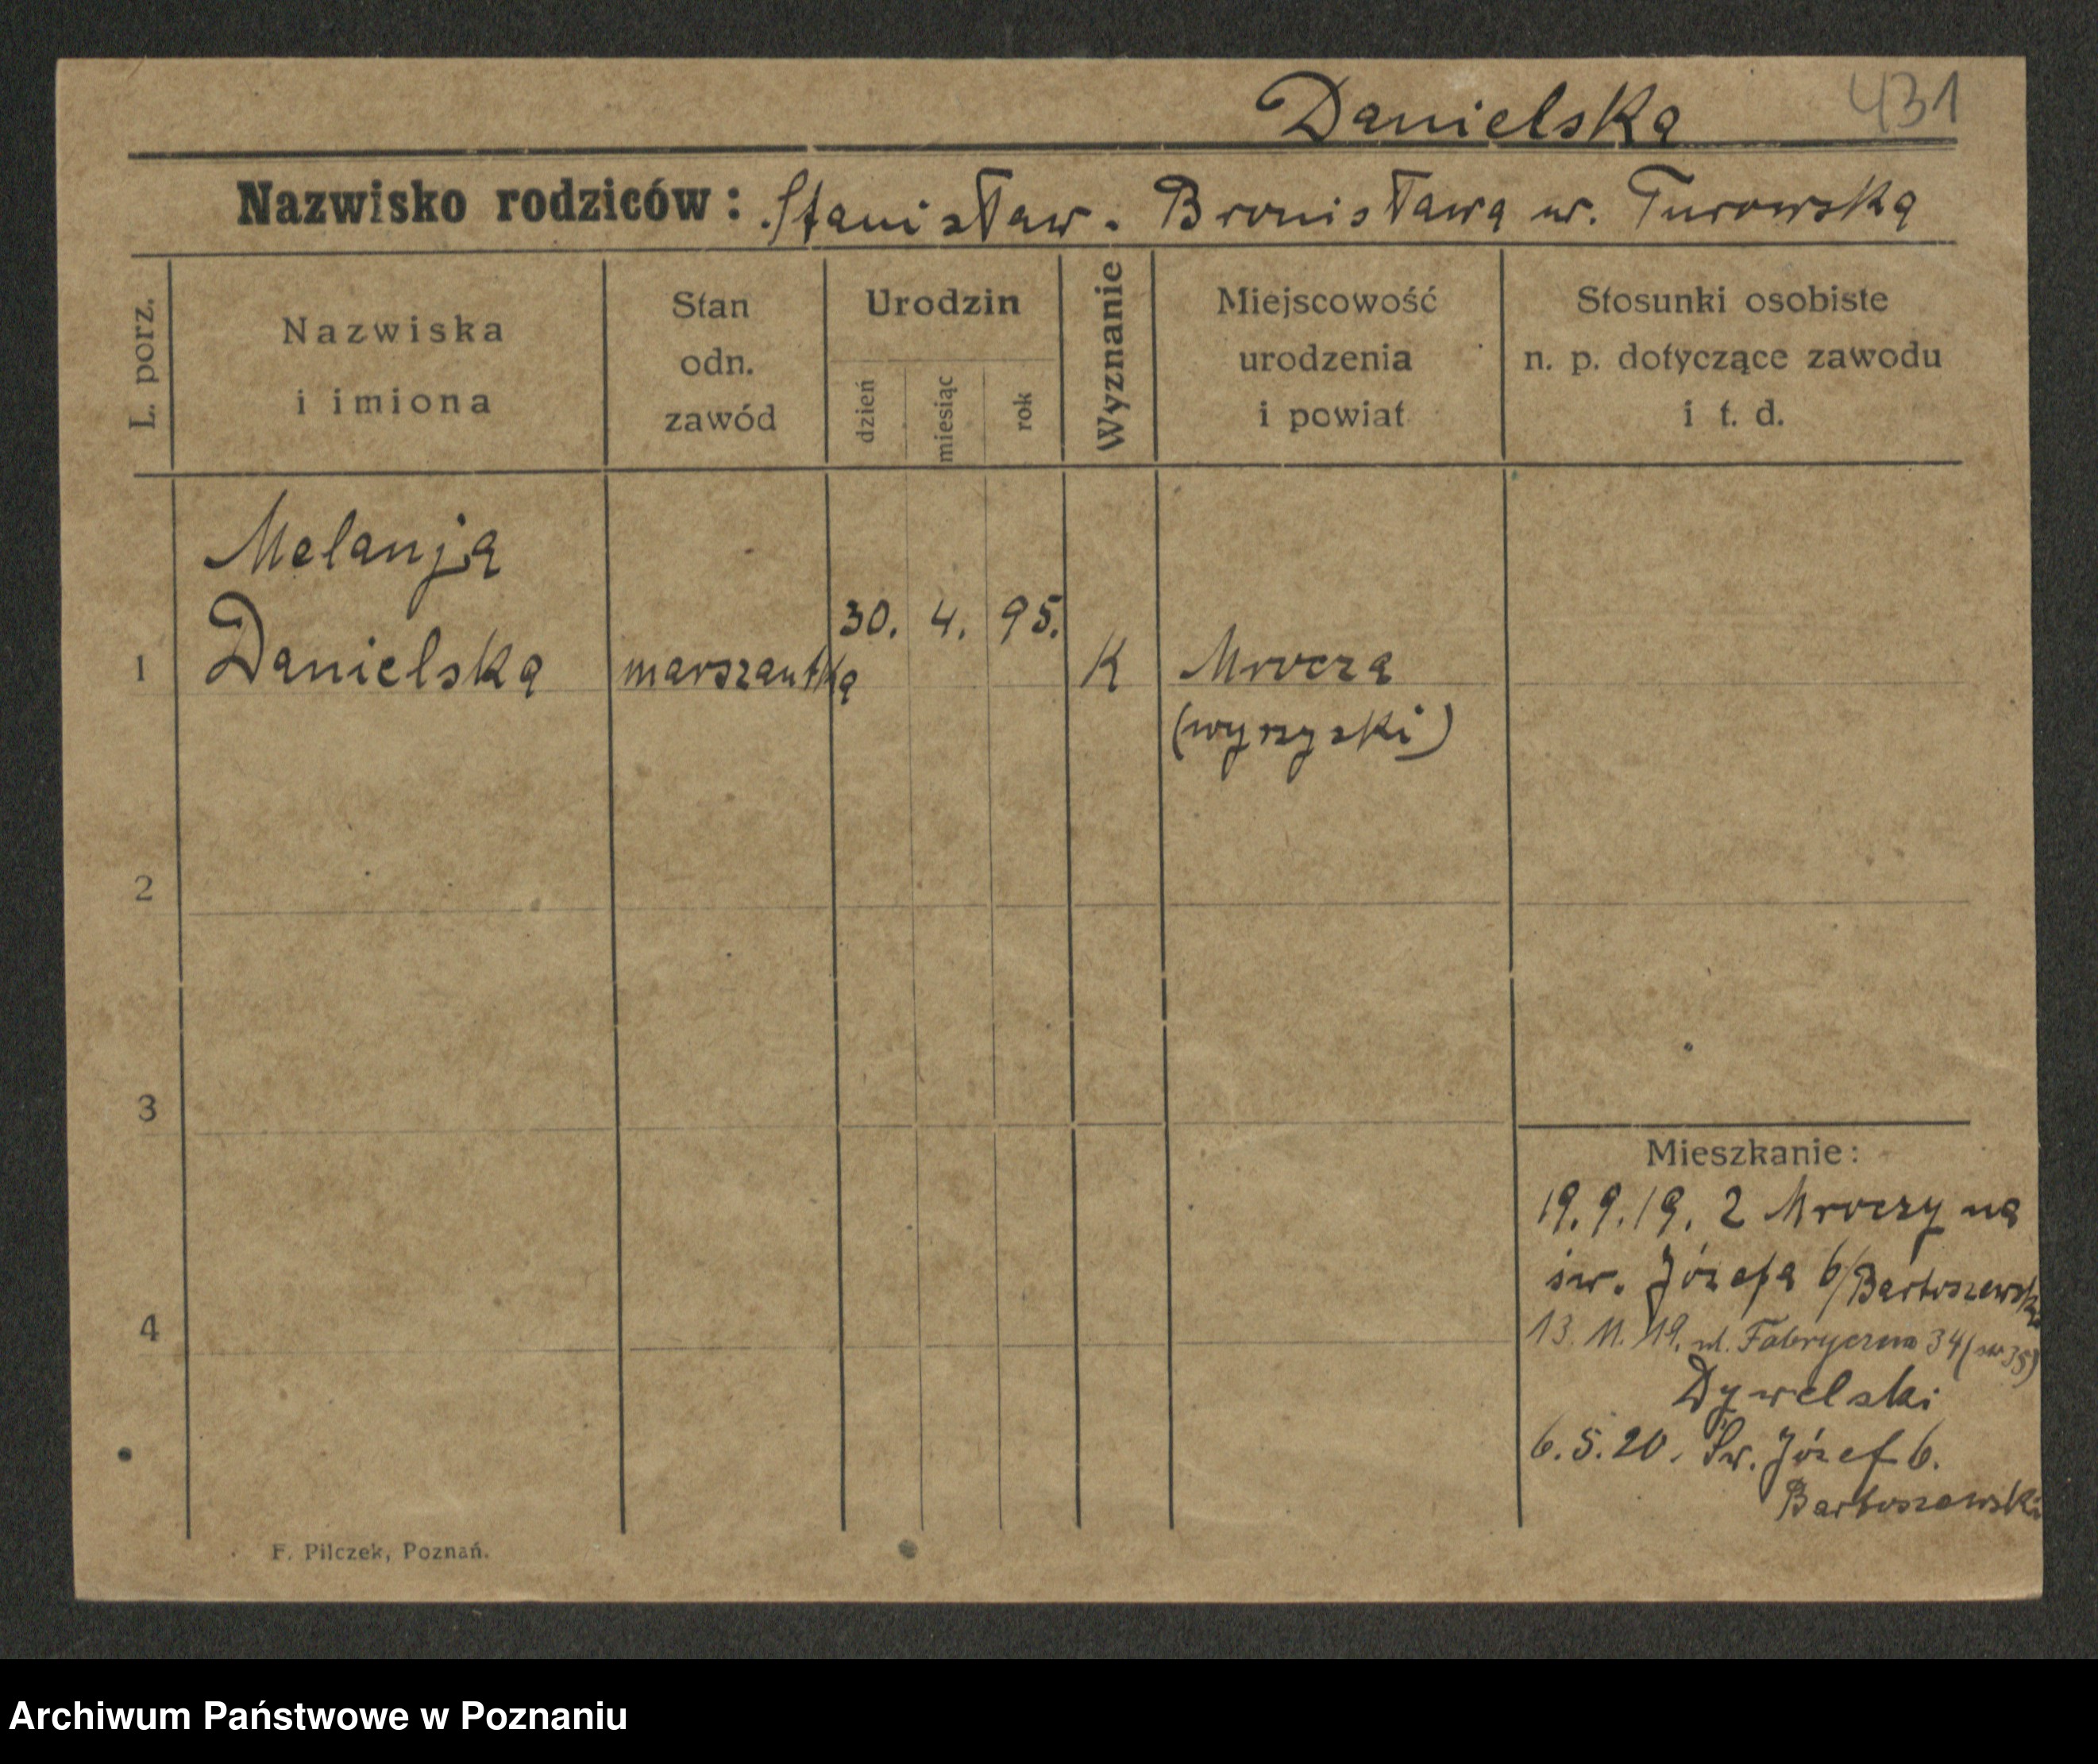 Danielska 431
Nazwisko rodziców: Stanisław. Bronisława ur. Turowska
L. porz.
Nazwiska
i imiona
Stan
odn.
zawód
Urodzin
dzień
miesiąc
rok
Wyznanie
Miejscowość
urodzenia
i powiat
Stosunki osobiste
n. p. dotyczące zawodu
i t. d.
Melanja
30. 4. 95.
1 Danielska K Mrocza
(wyrzyski)
2
3
Mieszkanie:
19.9.19. z Mroczy na
św. Józefa 6/Bartoszewski
4
13. 11. 19. ul. Fabryczna 34
Dywelski
6.5.20. Św. Józef 6.
Bartoszewski
F. Pilczek, Poznań.
Archiwum Państwowe w Poznaniu